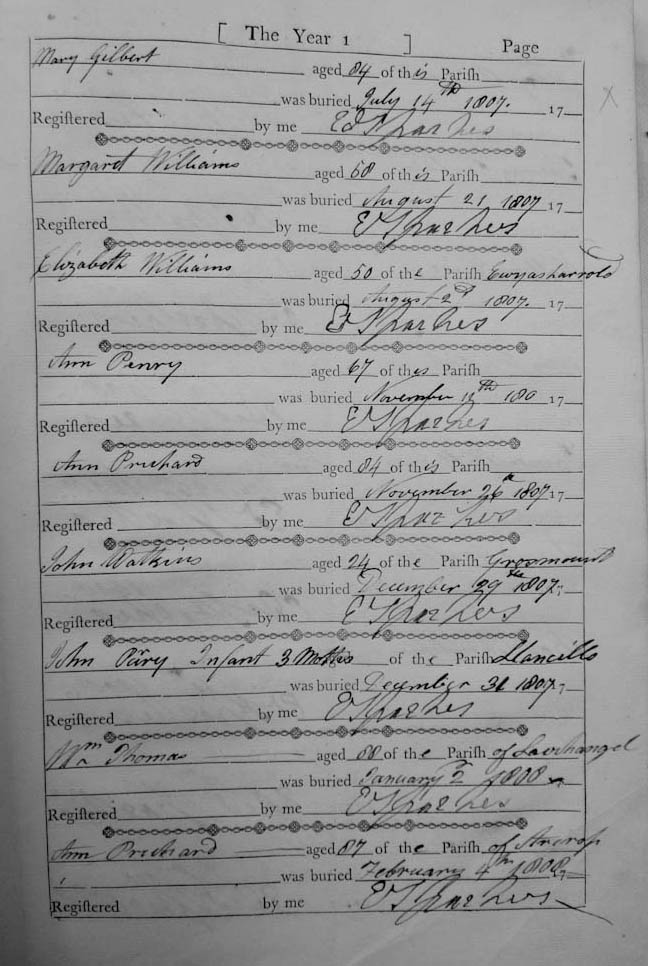 [ The Year 1 ] Page
Mary Gilbert
aged 84 of this Pariſh
was buried July 14th 1807. 17
Regiſtered by me Ed Sparkes
Margaret Williams
aged 58 of this Pariſh
was buried August 21 1807 17
Regiſtered by me E Sparkes
Elizabeth Williams aged 50 of the Pariſh Ewyasharrold
was buried August 2d 1807. 17
Regiſtered by me Ed Sparkes
Ann Penry aged 67 of this Pariſh
was buried November 11th 180 17
Regiſtered by me E Sparkes
Ann Prichard aged 84 of this Pariſh
was buried November 26th 1807 17
Regiſtered by me E Sparkes
John Watkins aged 24 of the Pariſh Grosmount
was buried December 29 1807 17
Regiſtered by me E Sparkes
John Parry Infant 3 Moths of the Pariſh Llancillo
was buried December 31 1807 17
Regiſtered by me E Sparkes
Wm Thomas aged 88 of the Pariſh of
was buried January 2 1808
Regiſtered by me E Sparkes
Ann Prichard aged 87 of the Pariſh of
was buried February 4th 1808 17
Regiſtered by me E Sparkes